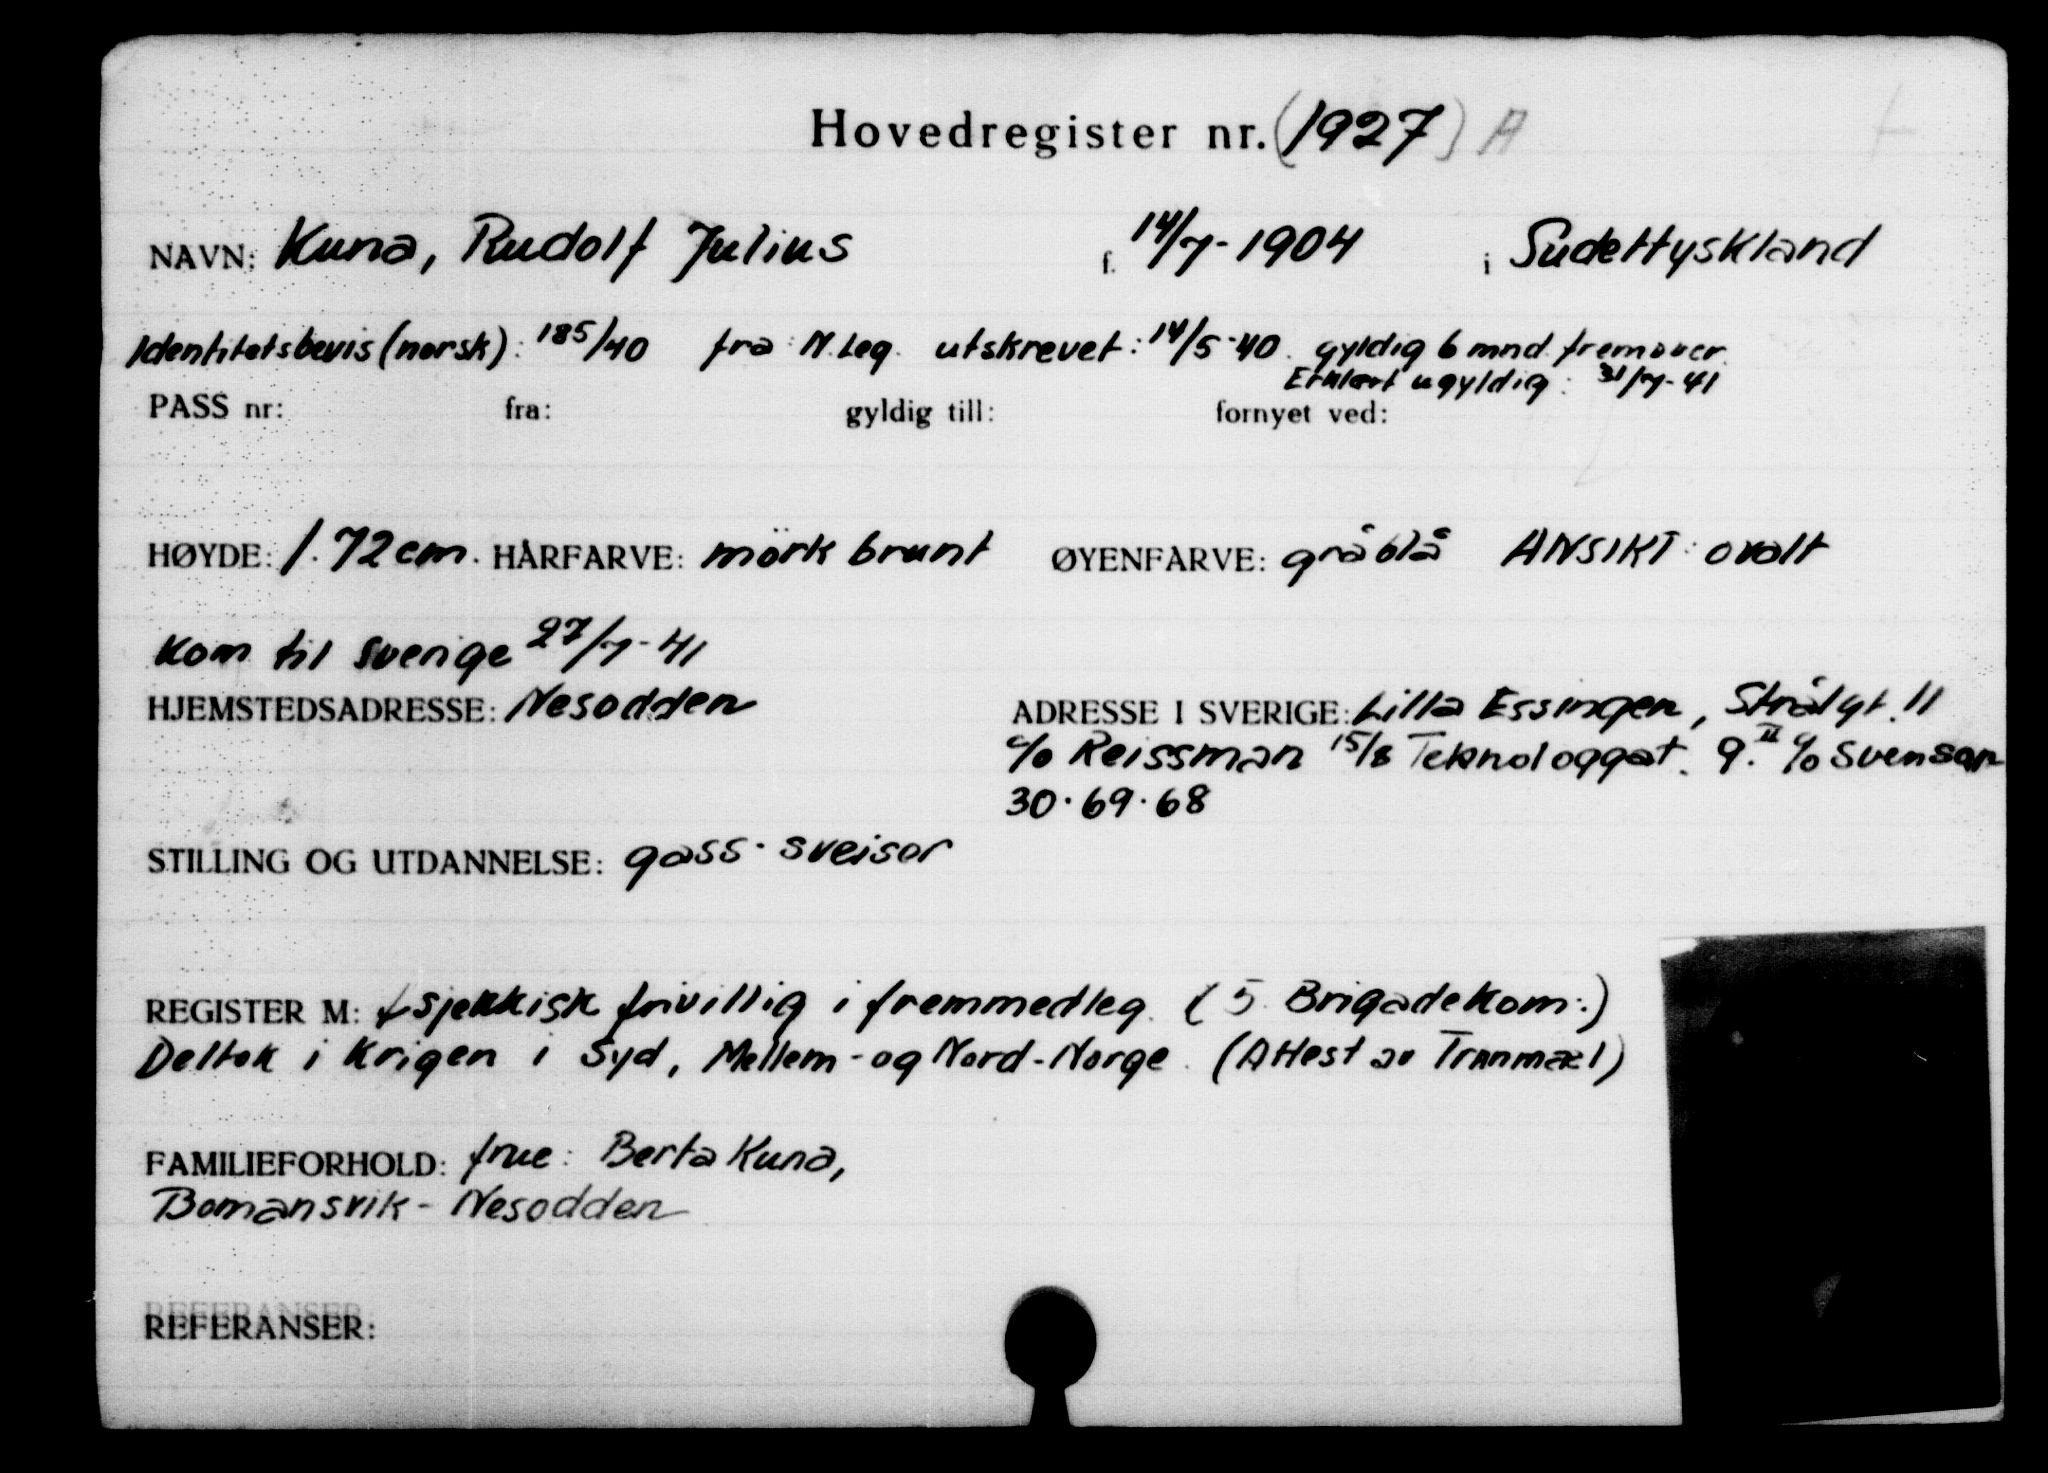 Hovedregister nr. (1927) A
NAVN: Kuna, Rudolf Julius f. 14/7-1904 i Sudettyskland
Identitetsbevis (norsk): 185/40 fra: N. Leg. utskrevet: 14/5-40. gyldig 6 mnd. fremover.
Erklært ugyldig: 31/7-41
PASS nr: fra: gyldig till: fornyet ved:
HØYDE: 1.72 cm. HÅRFARVE: mörk brunt ØYENFARVE: gråblå ANSIKT: ovalt
Kom til Sverige 27/7-41
HJEMSTEDSADRESSE: Nesodden ADRESSE I SVERIGE: Lilla Essingen, Strålgt. 11
c/o Reissman 15/8 Teknologgat. 9. II c/o Svenson
30.69.68
STILLING OG UTDANNELSE: gass-sveisor
REGISTER M: tsjekkisk frivillig i fremmedleg. (5. Brigadekom.)
Deltok i Krigen i Syd, Mellem- og Nord-Norge. (Attest av Tranmæl)
FAMILIEFORHOLD: frue: Berta Kuna,
Bomansvik - Nesodden
REFERANSER: